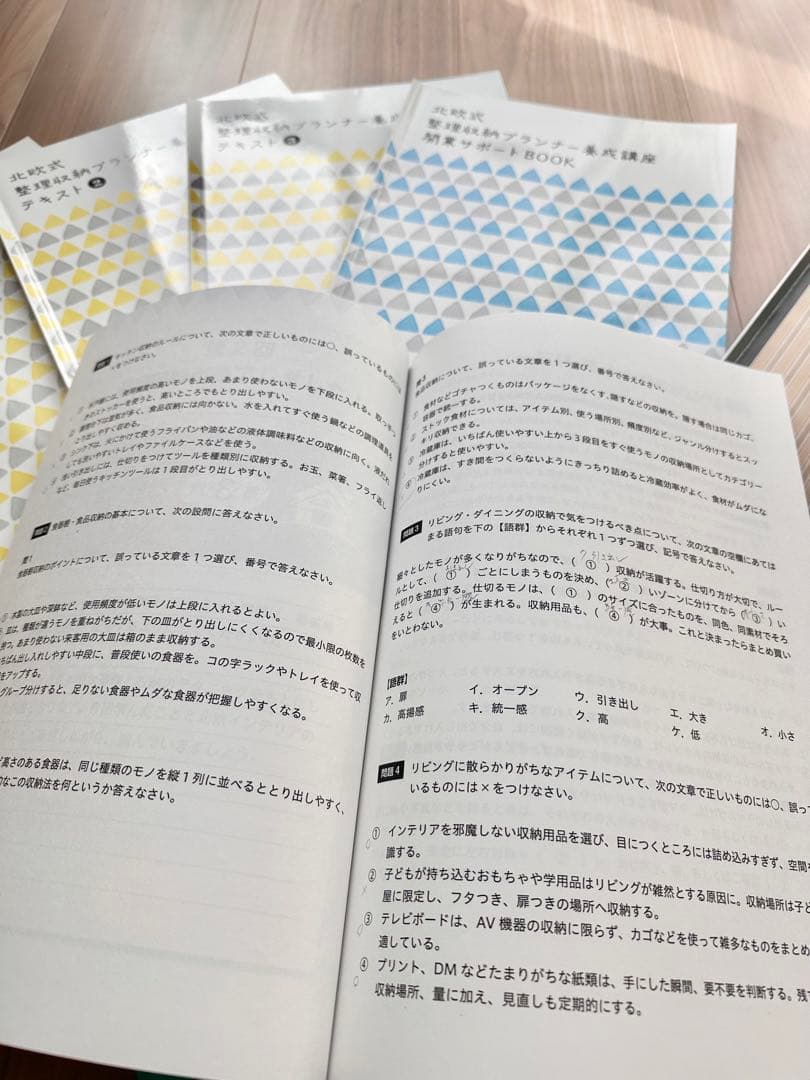 北欧式
整理収納プランナー養
テキスト2
北欧式
整理収納プランナー養成
テキスト3
北欧式
整理収納プランナー養成講座
開業サポートBOOK
キッチン収納のルールについて、次の文章で正しいものには○、誤っているものには
×をつけなさい。
吊戸棚には、使用頻度の高いモノを上段、あまり使わないモノを下段に入れる。取っ手つ
きのストッカーを使うと、高いところでもとり出しやすい。
とり出しやすく収める。
シンク下は、火にかけて使うフライパンや油などの液体調味料などの収納に向く。液だれ
しても洗いやすいトレイやファイルケースなどを使う。
引き出しには、仕切りをつけてツールを種類別に収納する。お玉、菜箸、フライ返し
など、毎日使うキッチンツールは1段目がとり出しやすい。
食器棚・食品収納の基本について、次の設問に答えなさい。
問1
食器棚収納のポイントについて、誤っている文章を1つ選び、番号で答えなさい。
木製の大皿や深鉢など、使用頻度が低いモノは上段に入れるとよい。
皿は、種類が違うモノを重ねがちだが、下の皿がとり出しにくくなるので最小限の枚数を
持つ。あまり使わない来客用の大皿は箱のまま収納する。
ちばん出し入れしやすい中段に、普段使いの食器を。コの字ラックやトレイを使って収
をアップする。
グループ分けすると、足りない食器やムダな食器が把握しやすくなる。
ど高さのある食器は、同じ種類のモノを縦1列に並べるととり出しやすく、
なこの収納法を何というか答えなさい。
問3
食品収納について、誤っている文章を1つ選び、番号で答えなさい。
① 食材などゴチャつくものはパッケージをなくす、隠すなどの収納を。隠す場合は同じカゴ、
状態で統一する。
② ストック食材については、アイテム別、使う場所別、頻度別など、ジャンル分けするとスッ
キリ収納できる。
③ 冷蔵庫は、いちばん使いやすい上から3段目をすぐ使うモノの収納場所としてカテゴリー
分けすると使いやすい。
④ 冷蔵庫は、すき間をつくらないようにきっちり詰めると冷蔵効率がよく、食材がムダにな
りにくい。
問題3 リビング・ダイニングの収納で気をつけるべき点について、次の文章の空欄にあては
まる語句を下の【語群】からそれぞれ1つずつ選び、記号で答えなさい。
細々としたモノが多くなりがちなので、( ① )収納が活躍する。仕切り方が大切で、ルー
ルとして、( ① )ごとにしまうものを決め、( ② )いゾーンに分けてから( ③ )い
仕切りを追加する。仕切るモノは、( ① )のサイズに合ったものを、同色、同素材でそろ
えると( ④ )が生まれる。収納用品も、( ④ )が大事。これと決まったらまとめ買い
をいとわない。
【語群】
ア. 扉 イ. オープン ウ. 引き出し エ. 大き オ. 小さ
カ. 高揚感 キ. 統一感 ク. 高 ケ. 低
問題4 リビングに散らかりがちなアイテムについて、次の文章で正しいものには○、誤って
いるものには×をつけなさい。
○① インテリアを邪魔しない収納用品を選び、目につくところには詰め込みすぎず、空間
識する。
×② 子どもが持ち込むおもちゃや学用品はリビングが雑然とする原因に。収納場所は子ど
屋に限定し、フタつき、扉つきの場所へ収納する。
○③ テレビボードは、AV機器の収納に限らず、カゴなどを使って雑多なものをまとめ
適している。
○④ プリント、DMなどたまりがちな紙類は、手にした瞬間、要不要を判断する。残す
収納場所、量に加え、見直しも定期的にする。